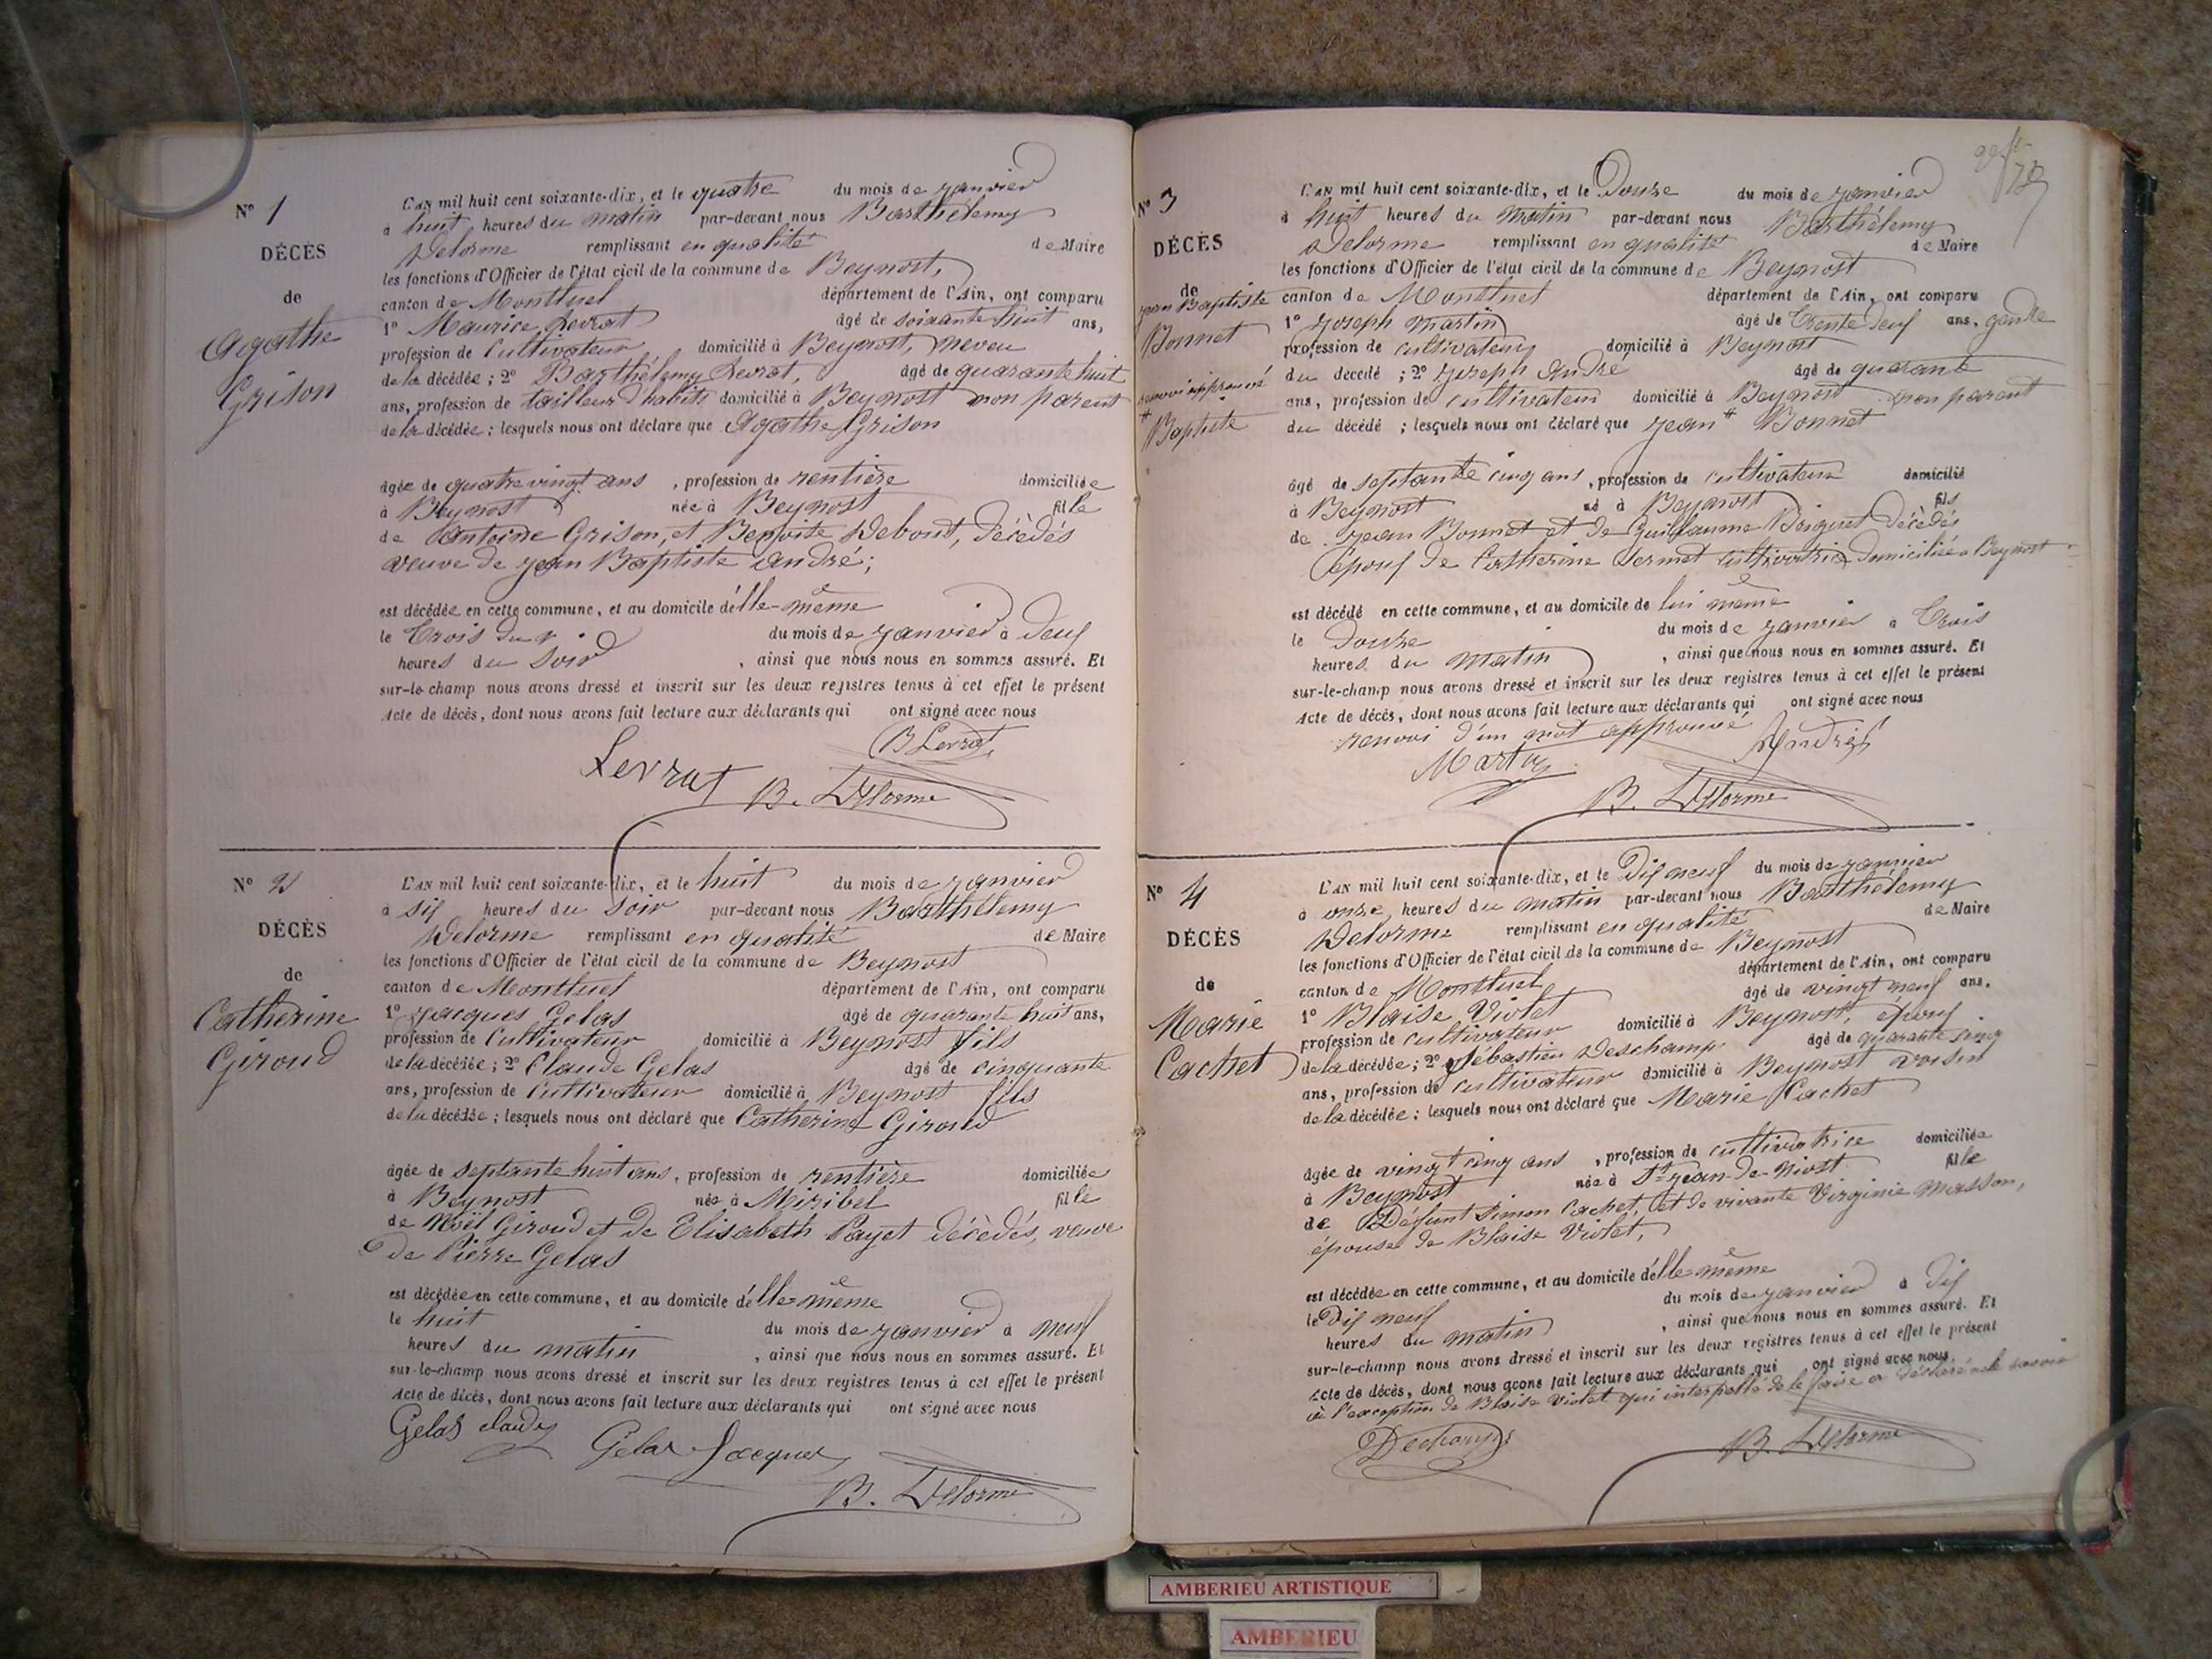 N° 1
DÉCÈS
de
Agathe
Grison
L'AN mil huit cent soixante-dix, et le quatre du mois de janvier
à huit heures du matin par-devant nous Barthélemy
Delorme remplissant en qualité de Maire
les fonctions d'Officier de l'état civil de la commune de Beynost,
canton de Montluel département de l'Ain, ont comparu
1° Maurice Levrat âgé de soixante huit ans,
profession de cultivateur domicilié à Beynost, neveu
de la décédée ; 2° Barthélemy Levrat, âgé de quarante huit
ans, profession de tailleur d'habits domicilié à Beynost non parent
de la décédée ; lesquels nous ont déclaré que Agathe Grison
âgée de quatre vingt ans, profession de rentière domiciliée
à Beynost née à Beynost fille
de Antoine Grison, et Benoite Debout, décèdés
veuve de jean Baptiste André ;
est décédée en cette commune, et au domicile d'elle-même
le Trois du du mois de janvier à deux
heures du soir, ainsi que nous nous en sommes assuré. Et
sur-le champ nous avons dressé et inscrit sur les deux registres tenus à cet effet le présent
Acte de décès, dont nous avons fait lecture aux déclarants qui ont signé avec nous
B Levrat
Levrat B. Delorme
N° 2
DÉCÈS
de
Catherine
Giroud
L'AN mil huit cent soixante-dix, et le huit du mois de janvier
à six heures du soir par-devant nous Barthélemy
Delorme remplissant en qualité de Maire
les fonctions d'Officier de l'état civil de la commune de Beynost
canton de Montluel département de l'Ain, ont comparu
1° jacques Gelas âgé de quarante huit ans,
profession de cultivateur domicilié à Beynost fils
de la décédée ; 2° Claude Gelas âgé de cinquante
ans, profession de cultivateur domicilié à Beynost fils
de la décédée ; lesquels nous ont déclaré que Catherine Giroud
âgée de septante huit ans, profession de rentière domiciliée
à Beynost née à Miribel fille
de Noël Giroud et de Elisabeth Payet décèdés, veuve
de Pierre Gelas
est décédée en cette commune, et au domicile d'elle-même
le huit du mois de janvier à neuf
heures du matin, ainsi que nous nous en sommes assuré. Et
sur-le-champ nous avons dressé et inscrit sur les deux registres tenus à cet effet le présent
Acte de décès, dont nous avons fait lecture aux déclarants qui ont signé avec nous
Gelas claude
Gelas Jacques
B. Delorme
N° 3
DÉCÈS
de
jean Baptiste
Bonnet
renvoi approuvé
# Baptiste
L'AN mil huit cent soixante-dix, et le Douze du mois de janvier
à huit heures du matin par-devant nous Barthélemy
Delorme remplissant en qualité de Maire
les fonctions d'Officier de l'état civil de la commune de Beynost
canton de Montluel département de l'Ain, ont comparu
1° joseph Martin âgé de Trente deux ans, gendre
profession de cultivateur domicilié à Beynost
du decedé ; 2° joseph André âgé de quarante
ans, profession de cultivateur domicilié à Beynost non parent
du décédé ; lesquels nous ont déclaré que jean # Bonnet
âgé de septante cinq ans, profession de cultivateur domicilié
à Beynost né à Beynost fils
de jean Bonnet et de Guillaume Boiguet décèdés
époux de Catherine Sermet cultivatrice domiciliée à Beynost
est décédé en cette commune, et au domicile de lui même
le douze du mois de janvier à Trois
heures du matin, ainsi que nous nous en sommes assuré. Et
sur-le-champ nous avons dressé et inscrit sur les deux registres tenus à cet effet le présent
Acte de décès, dont nous avons fait lecture aux déclarants qui ont signé avec nous
renvoi d'un mot approuvé
Martin
André
B. Delorme
N° 4
DÉCÈS
de
Marie
Cachet
L'AN mil huit cent soixante-dix, et le Dix neuf du mois de janvier
à onze heures du matin par-devant nous Barthélemy
Delorme remplissant en qualité de Maire
les fonctions d'Officier de l'état civil de la commune de Beynost
canton de Montluel département de l'Ain, ont comparu
1° Blaise Violet âgé de vingt neuf ans.
profession de cultivateur domicilié à Beynost, époux
de la décédée ; 2° Sébastien Deschamp âgé de quarante cinq
ans, profession de cultivateur domicilié à Beynost voisin
de la décédée ; lesquels nous ont déclaré que Marie Cachet
âgée de vingt cinq ans, profession de cultivatrice domiciliée
à Beynost née à St jean-de-Niost fille
de Défunt Simon Cachet, et de vivante Virginie Masson,
épouse de Blaise Violet,
est décédée en cette commune, et au domicile d'elle-même
le Dix neuf du mois de janvier à dix
heures du matin, ainsi que nous nous en sommes assuré. Et
sur-le-champ nous avons dressé et inscrit sur les deux registres tenus à cet effet le présent
Acte de décès, dont nous avons fait lecture aux déclarants qui ont signé avec nous
à l'exception de Blaise Violet qui interpellé de le faire a déclaré ne le savoir
Dechamps
B. Delorme
AMBERIEU ARTISTIQUE
AMBERIEU